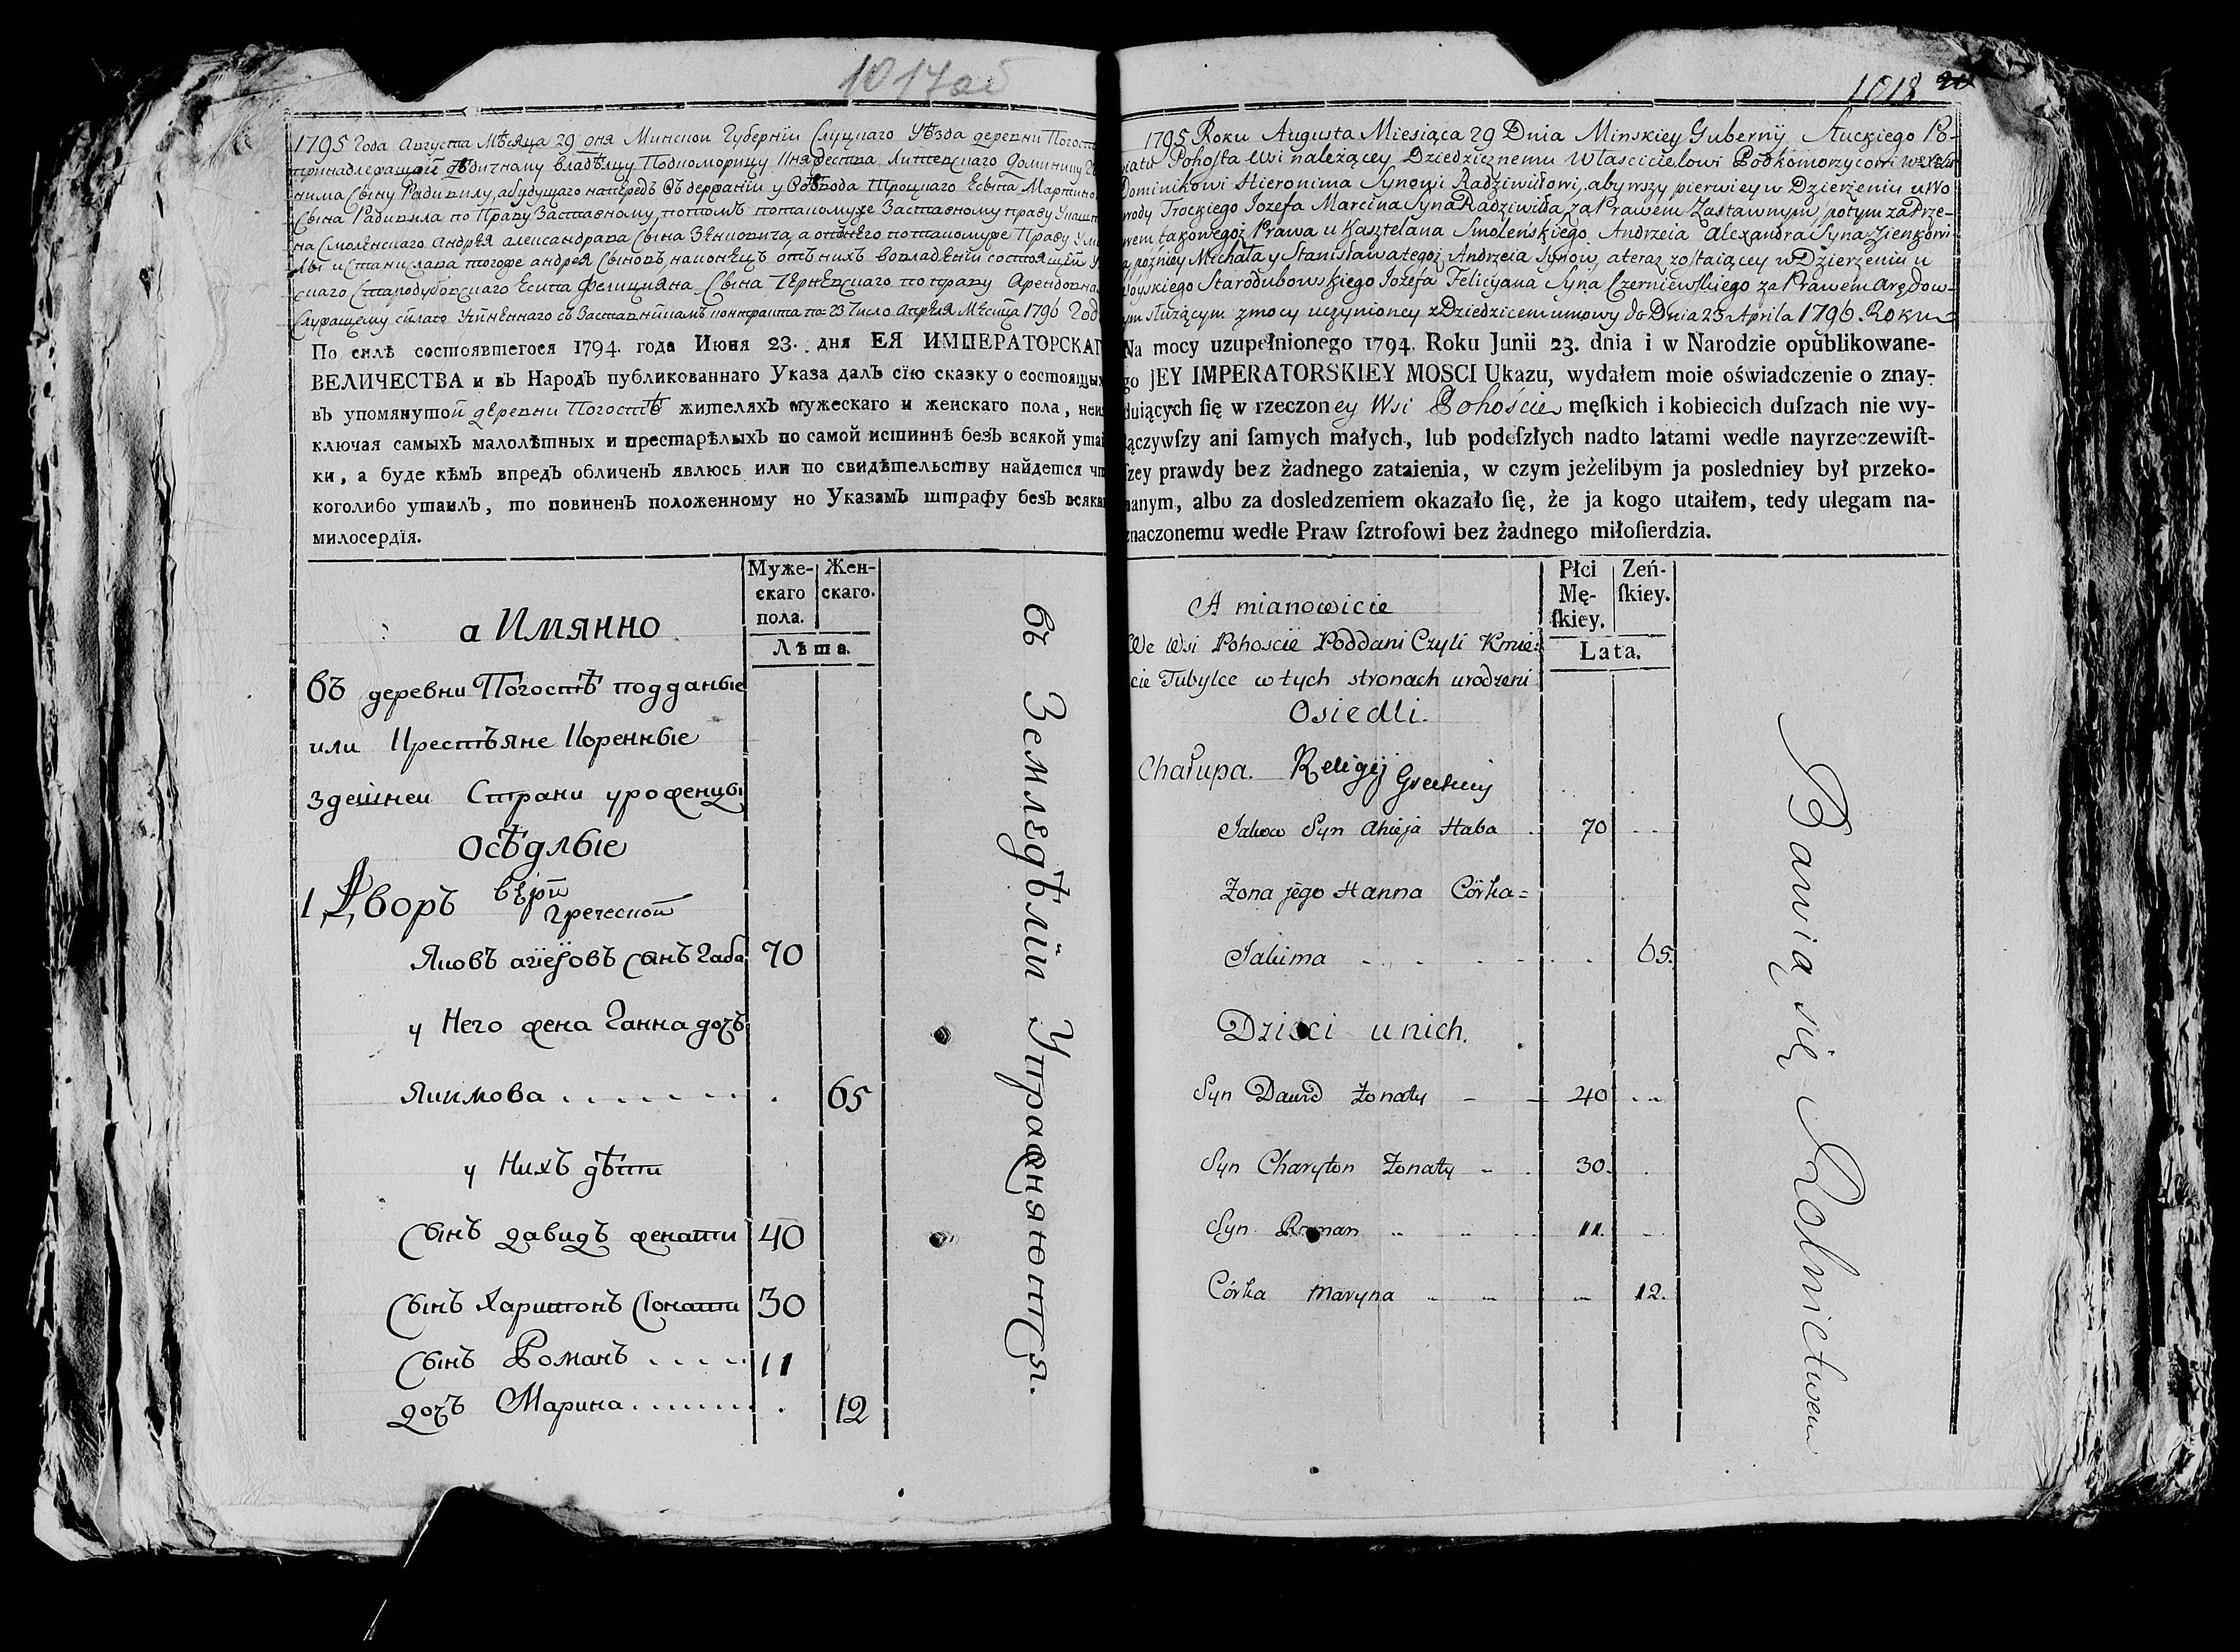 1017об
1795 Года Августа Мѣсяца 29 дня Минской Губернїи Слуцкаго Уѣзда деревни Погост
принадлежащой дѣдичному владѣльцу Подкоморицу Княжества Литовскаго Доминику
нима Сыну Радивилу, абудущаго напередъ въ держанїи у Воеводы Троцкаго Есыпа Мартино
Сына Радивила по Праву Заставному, потомъ потакомуже Заставному праву Укашт
на Смоленскаго Андрея александрава Сына Зѣнковича, а отънего потакомуже Праву
лы и Станислава тогоже андрея Сыновъ, наконецъ отъ нихъ вовладенїи состоящей
скаго Стародубовскаго Есипа Фелицияна Сына Чернѣвскаго по праву Арендовна
Служащему силаю Учиненнаго съ Заставникамъ контракта по= 23 Число Апреля Мѣсяца 1796 Год
По силѣ состоявшегося 1794. года Июня 23. дня ЕЯ ИМПЕРАТОРСКАГ
ВЕЛИЧЕСТВА и въ Народъ публикованнаго Указа далъ сїю сказку о состоящых
въ упомянутой деревни Погостѣ жителяхъ мужескаго и женскаго пола, неи
ключая самыхъ малолѣтных и престарѣлыхъ по самой истиннѣ безъ всякой утай
ки, а буде кѣмъ впредъ обличенъ явлюсь или по свидѣтельству найдется чт
коголибо утаилъ, то повиненъ положенному по Указамъ штрафу безъ всяка
милосердїя.
Муже-
скаго
пола.
Жен-
скаго.
Лѣта.
а Имянно
въ деревни Погостѣ подданые
или Крестъяне Коренные
здешней Страни уроженцы
Осѣдлые
1 Дворъ вѣри
греческой
Яковъ агїеϳовъ сынъ Габа 70
у Него жена Ганна дочъ
якимова . . . . . . . 65
у Нихъ дѣти
сынъ давидъ женати 40
сынъ Харитонъ Жонати 30
сынъ Романъ . . . . 11
дочъ Марина . . . . . . 12
въ Земледѣлїи Упражняются.
1018 20
1795 Roku Augusta Miesiąca 29 Dnia Minskiey Guberny Słuckiego Po-
wiatu Pohosta Wsi należącey Dziedzicznemu Włascicielowi Podkomorzycowi
Dominikowi Hieronima Synowi Radziwiłowi, abywszy pierwiey w Dzierżeniu u Wo
wody Trockiego Jozefa Marcina Syna Radziwiłła, za Prawem Zastawnym, potym za Prze-
wem takowegoż Prawa u Kasztelana Smoleńskiego Andrzeia Alexandra Syna Zienkowi
a, pozniey Michała y Stanisława tegoż Andrzeia Synow, a teraz zostaiącey w Dzierżeniu u
Woyskiego Starodubowskiego Jozefa Felicyana Syna Czerniewskiego za Prawem Arędow-
nym służącym z mocy uczynioney z Dziedzicem umowy do Dnia 23 Aprila 1796. Roku
Na mocy uzupełnionego 1794. Roku Junii 23. dnia i w Narodzie opublikowane-
go JEY IMPERATORSKIEY MOSCI Ukazu, wydałem moie oświadczenie o znay-
duiących ſię w rzeczoney Wsi Pohoście męſkich i kobiecich duſzach nie wy-
łączywſzy ani ſamych małych, lub podeſzłych nadto latami wedle nayrzeczewiſt-
ſzey prawdy bez żadnego zataienia, w czym jeżelibym ja posledniey był przeko-
nanym, albo za dosledzeniem okazało ſię, że ja kogo utaiłem, tedy ulegam na-
znaczonemu wedle Praw ſztrofowi bez żadnego miłoſierdzia.
Płci
Mę-
ſkiey.
Zeń-
ſkiey.
Lata.
A mianowicie
We Wsi Pohoscie Poddani Czyli Kmie-
cie Tubylce w tych stronach urodzeni
Osiedli.
Chałupa. Religij Greckiey
Jakow Syn Ahieja Haba 70
Żona jego Hanna Córka=
Jakima 65.
Dzieci u nich.
Syn Dawid Żonaty 40
Syn Charyton Żonaty 30.
Syn Roman 11.
Córka Maryna 12.
Bawią się Rolnictwem